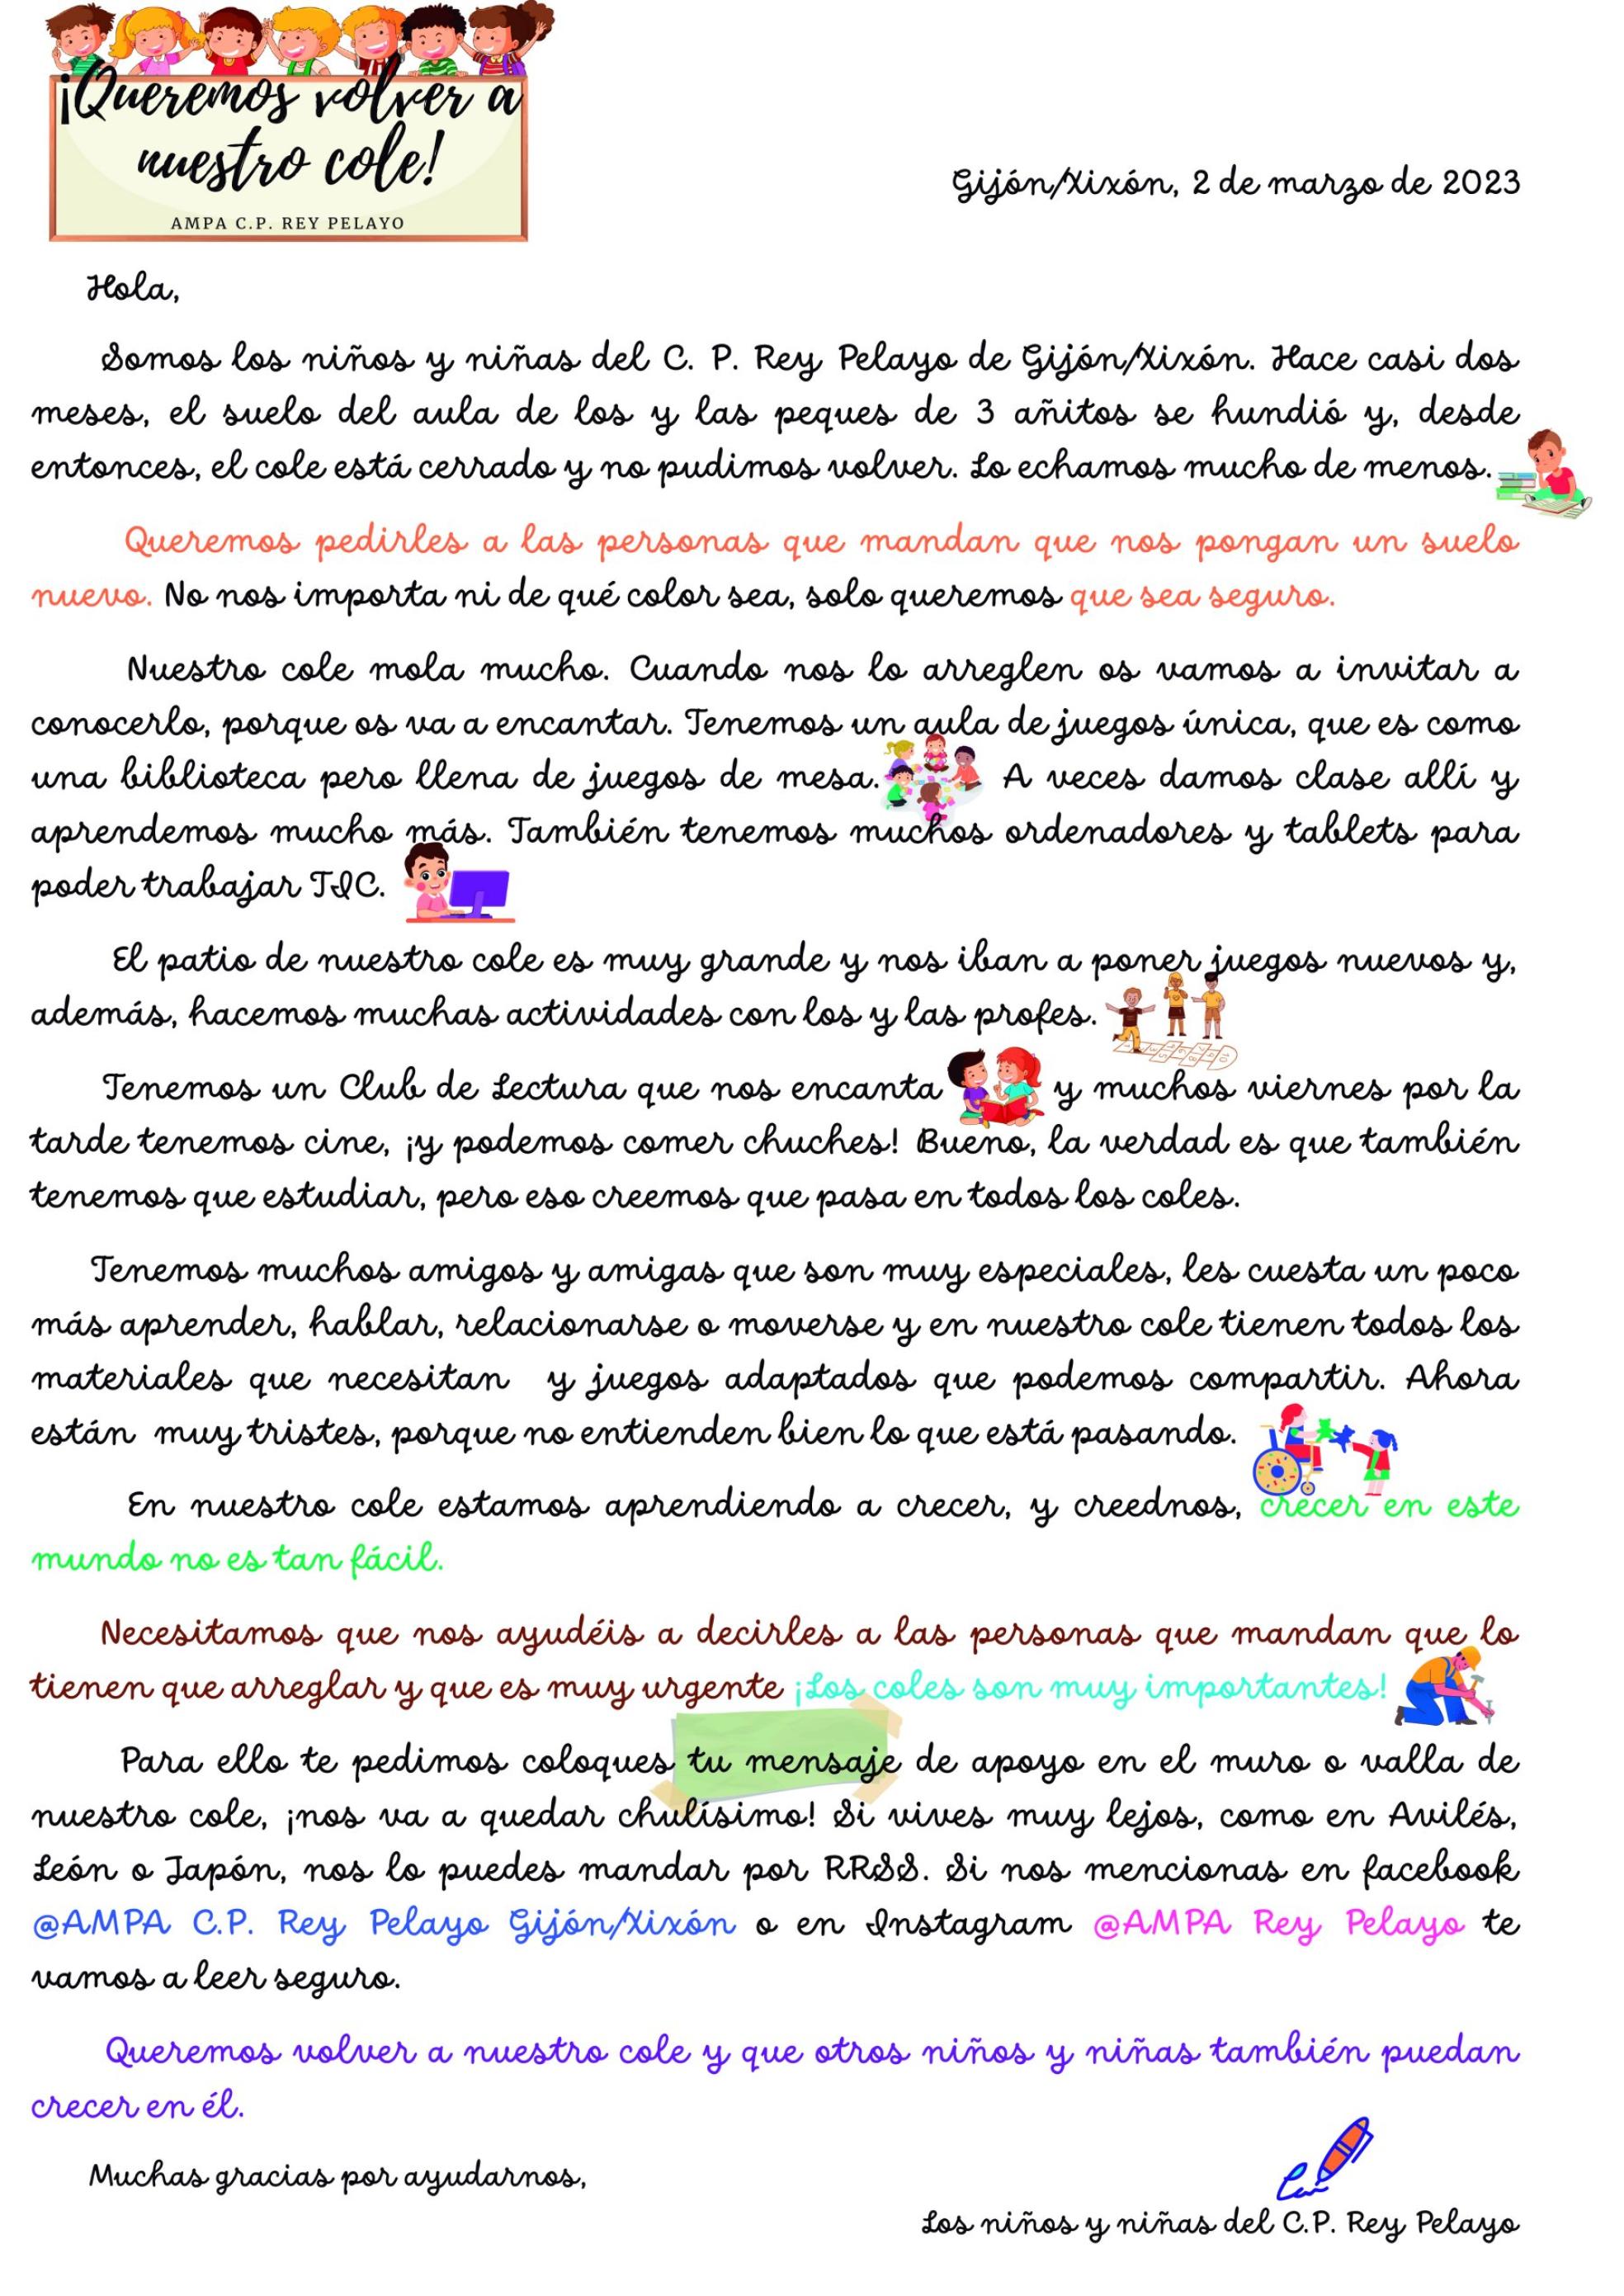 ¡Queremos volver a
nuestro cole!
AMPA C.P. REY PELAYO
Gijón/Xixón, 2 de marzo de 2023
Hola,
Somos los niños y niñas del C. P. Rey Pelayo de Gijón/Xixón. Hace casi dos
meses, el suelo del aula de los y las peques de 3 añitos se hundió y, desde
entonces, el cole está cerrado y no pudimos volver. Lo echamos mucho de menos.
Queremos pedirles a las personas que mandan que nos pongan un suelo
nuevo. No nos importa ni de qué color sea, solo queremos que sea seguro.
Nuestro cole mola mucho. Cuando nos lo arreglen os vamos a invitar a
conocerlo, porque os va a encantar. Tenemos un aula de juegos única, que es como
una biblioteca pero llena de juegos de mesa. A veces damos clase allí y
aprendemos mucho más. También tenemos muchos ordenadores y tablets para
poder trabajar TIC.
El patio de nuestro cole es muy grande y nos iban a poner juegos nuevos y,
además, hacemos muchas actividades con los y las profes.
Tenemos un Club de Lectura que nos encanta y muchos viernes por la
tarde tenemos cine, ¡y podemos comer chuches! Bueno, la verdad es que también
tenemos que estudiar, pero eso creemos que pasa en todos los coles.
Tenemos muchos amigos y amigas que son muy especiales, les cuesta un poco
más aprender, hablar, relacionarse o moverse y en nuestro cole tienen todos los
materiales que necesitan y juegos adaptados que podemos compartir. Ahora
están muy tristes, porque no entienden bien lo que está pasando.
En nuestro cole estamos aprendiendo a crecer, y creednos, crecer en este
mundo no es tan fácil.
Necesitamos que nos ayudéis a decirles a las personas que mandan que lo
tienen que arreglar y que es muy urgente ¡Los coles son muy importantes!
Para ello te pedimos coloques tu mensaje de apoyo en el muro o valla de
nuestro cole, ¡nos va a quedar chulísimo! Si vives muy lejos, como en Avilés,
León o Japón, nos lo puedes mandar por RRSS. Si nos mencionas en facebook
@AMPA C.P. Rey Pelayo Gijón/Xixón o en Instagram @AMPA Rey Pelayo te
vamos a leer seguro.
Queremos volver a nuestro cole y que otros niños y niñas también puedan
crecer en él.
Muchas gracias por ayudarnos,
Los niños y niñas del C.P. Rey Pelayo